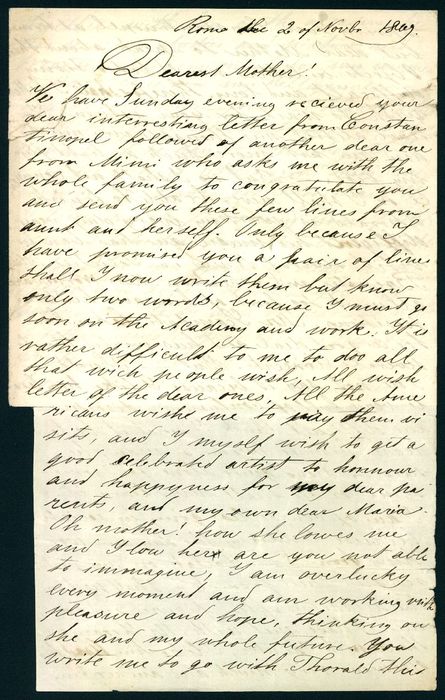 Rome the 2 of Novbr 1869.
Dearest Mother!
We have Sunday evening recieved your
dear interresting letter from Constan
tinopel followed of another dear one
from Mimi who asks me with the
whole family to congratulate you
and send you these few lines from
aunt and herself. Only because I
have promised you a pair of lines
shall I now write them but know
only two words, because I must go
soon on the Academy and work. It is
rather difficult to me to doo all
that wich people wish, All wish
letter of the dear ones, All the Ame
ricans wish me to pay them vi
sits, and I myself wish to get a
good celebrated artist to honnour
and happyness for my dear pa
rents, and my own dear Maria.
Oh mother! how she lowes me
and I low her are you not able
to immagine, I am overlucky
every moment and am working with
pleasure and hope, thinking on
she and my whole future. You
write me to go with Thorald this